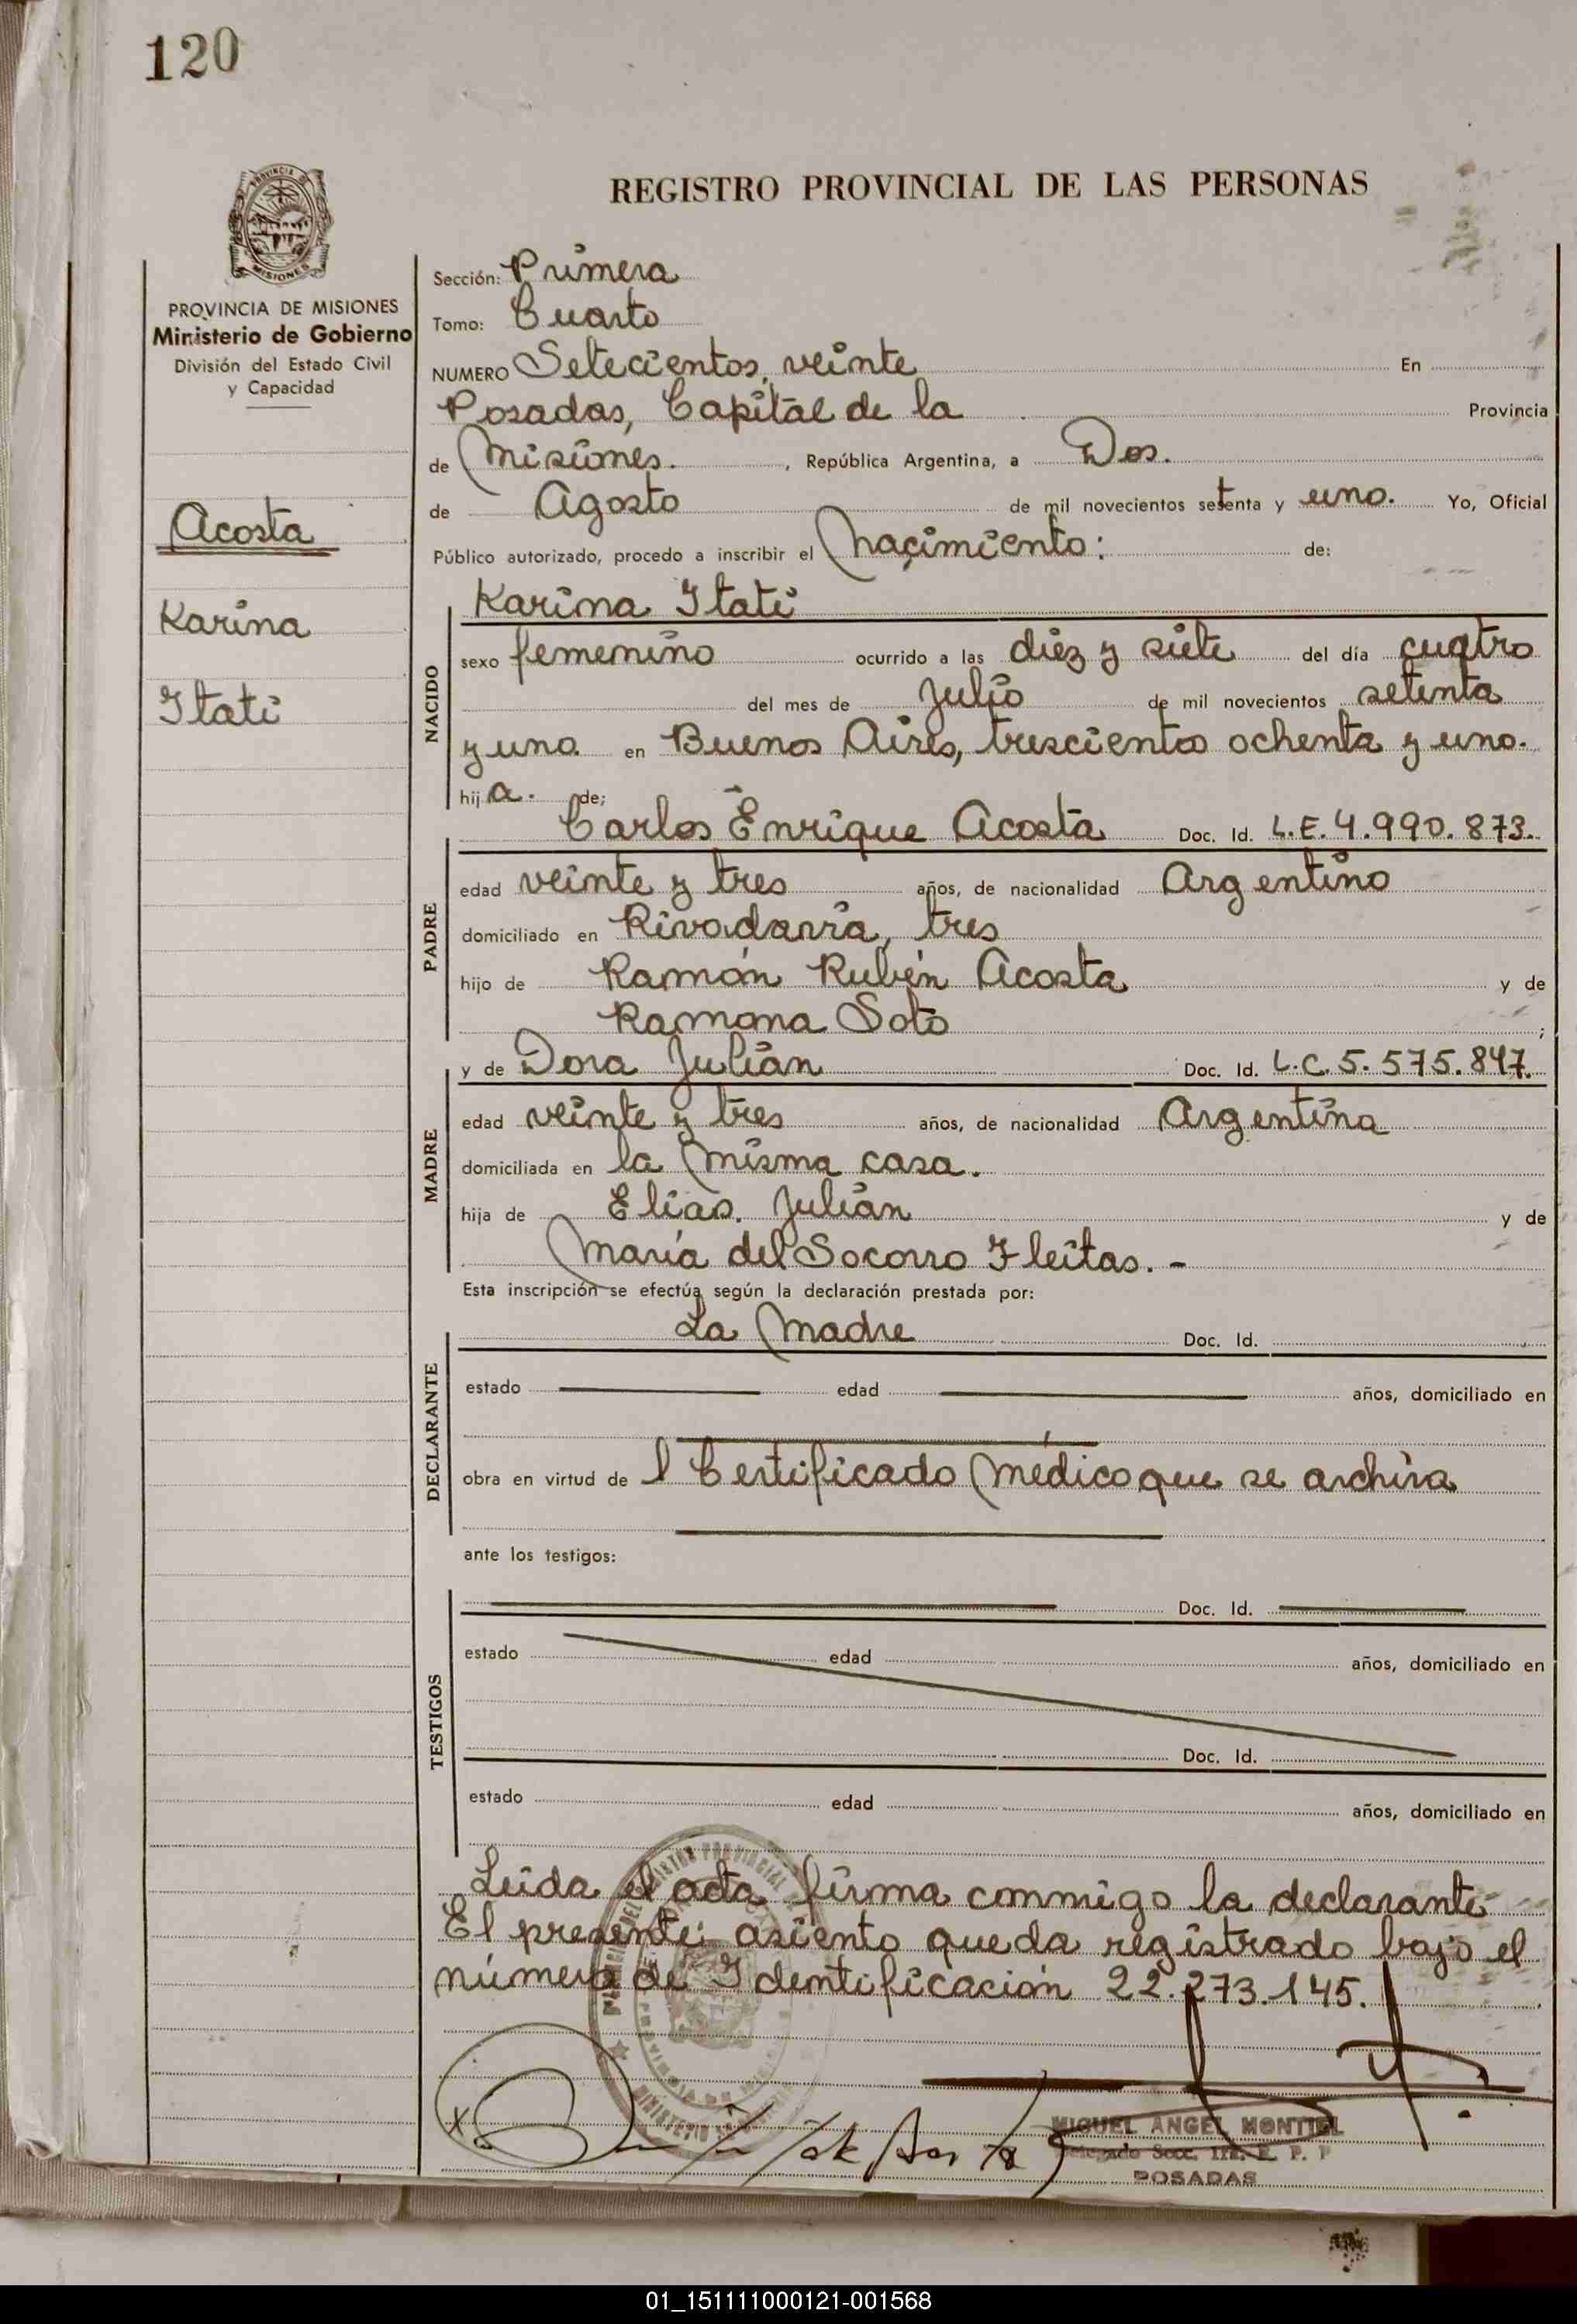 120
REGISTRO PROVINCIAL DE LAS PERSONAS
PROVINCIA DE MISIONES
Ministerio de Gobierno
División del Estado Civil
y Capacidad
Acosta
Karina
Itati
Sección: Primera
Tomo: Cuarto
NUMERO Setecientos, veinte En
Posadas, Capital de la Provincia
de Misiones. , República Argentina, a Dos.
de Agosto de mil novecientos setenta y uno. Yo, Oficial
Público autorizado, procedo a inscribir el nacimiento: de:
NACIDO
Karina Itati
sexo femenino ocurrido a las diez y siete del día cuatro
del mes de Julio de mil novecientos setenta
y uno en Buenos Aires, trescientos ochenta y uno.
hija. de;
Carlos Enrique Acosta Doc. Id. L.E. 4.990.873.
PADRE
edad veinte y tres años, de nacionalidad Argentino
domiciliado en Rivadavia, tres
hijo de Ramón Rubén Acosta y de
Ramona Soto ;
y de Dora Julián Doc. Id. L.C. 5.575.847.
MADRE
edad veinte y tres años, de nacionalidad Argentina
domiciliada en la misma casa.
hija de Elias Julián y de
María del Socorro Fleitas. -
Esta inscripción se efectúa según la declaración prestada por:
La Madre Doc. Id.
DECLARANTE
estado edad años, domiciliado en
obra en virtud de l Certificado médico que se archiva
ante los testigos:
TESTIGOS
Doc. Id.
estado edad años, domiciliado en
Doc. Id.
estado edad años, domiciliado en
Leida el acta firma conmigo la declarante
El presente asiento queda registrado bajo el
número de Identificación 22.273.145.
MIGUEL ANGEL MONTIEL
POSADAS
01_151111000121-001568